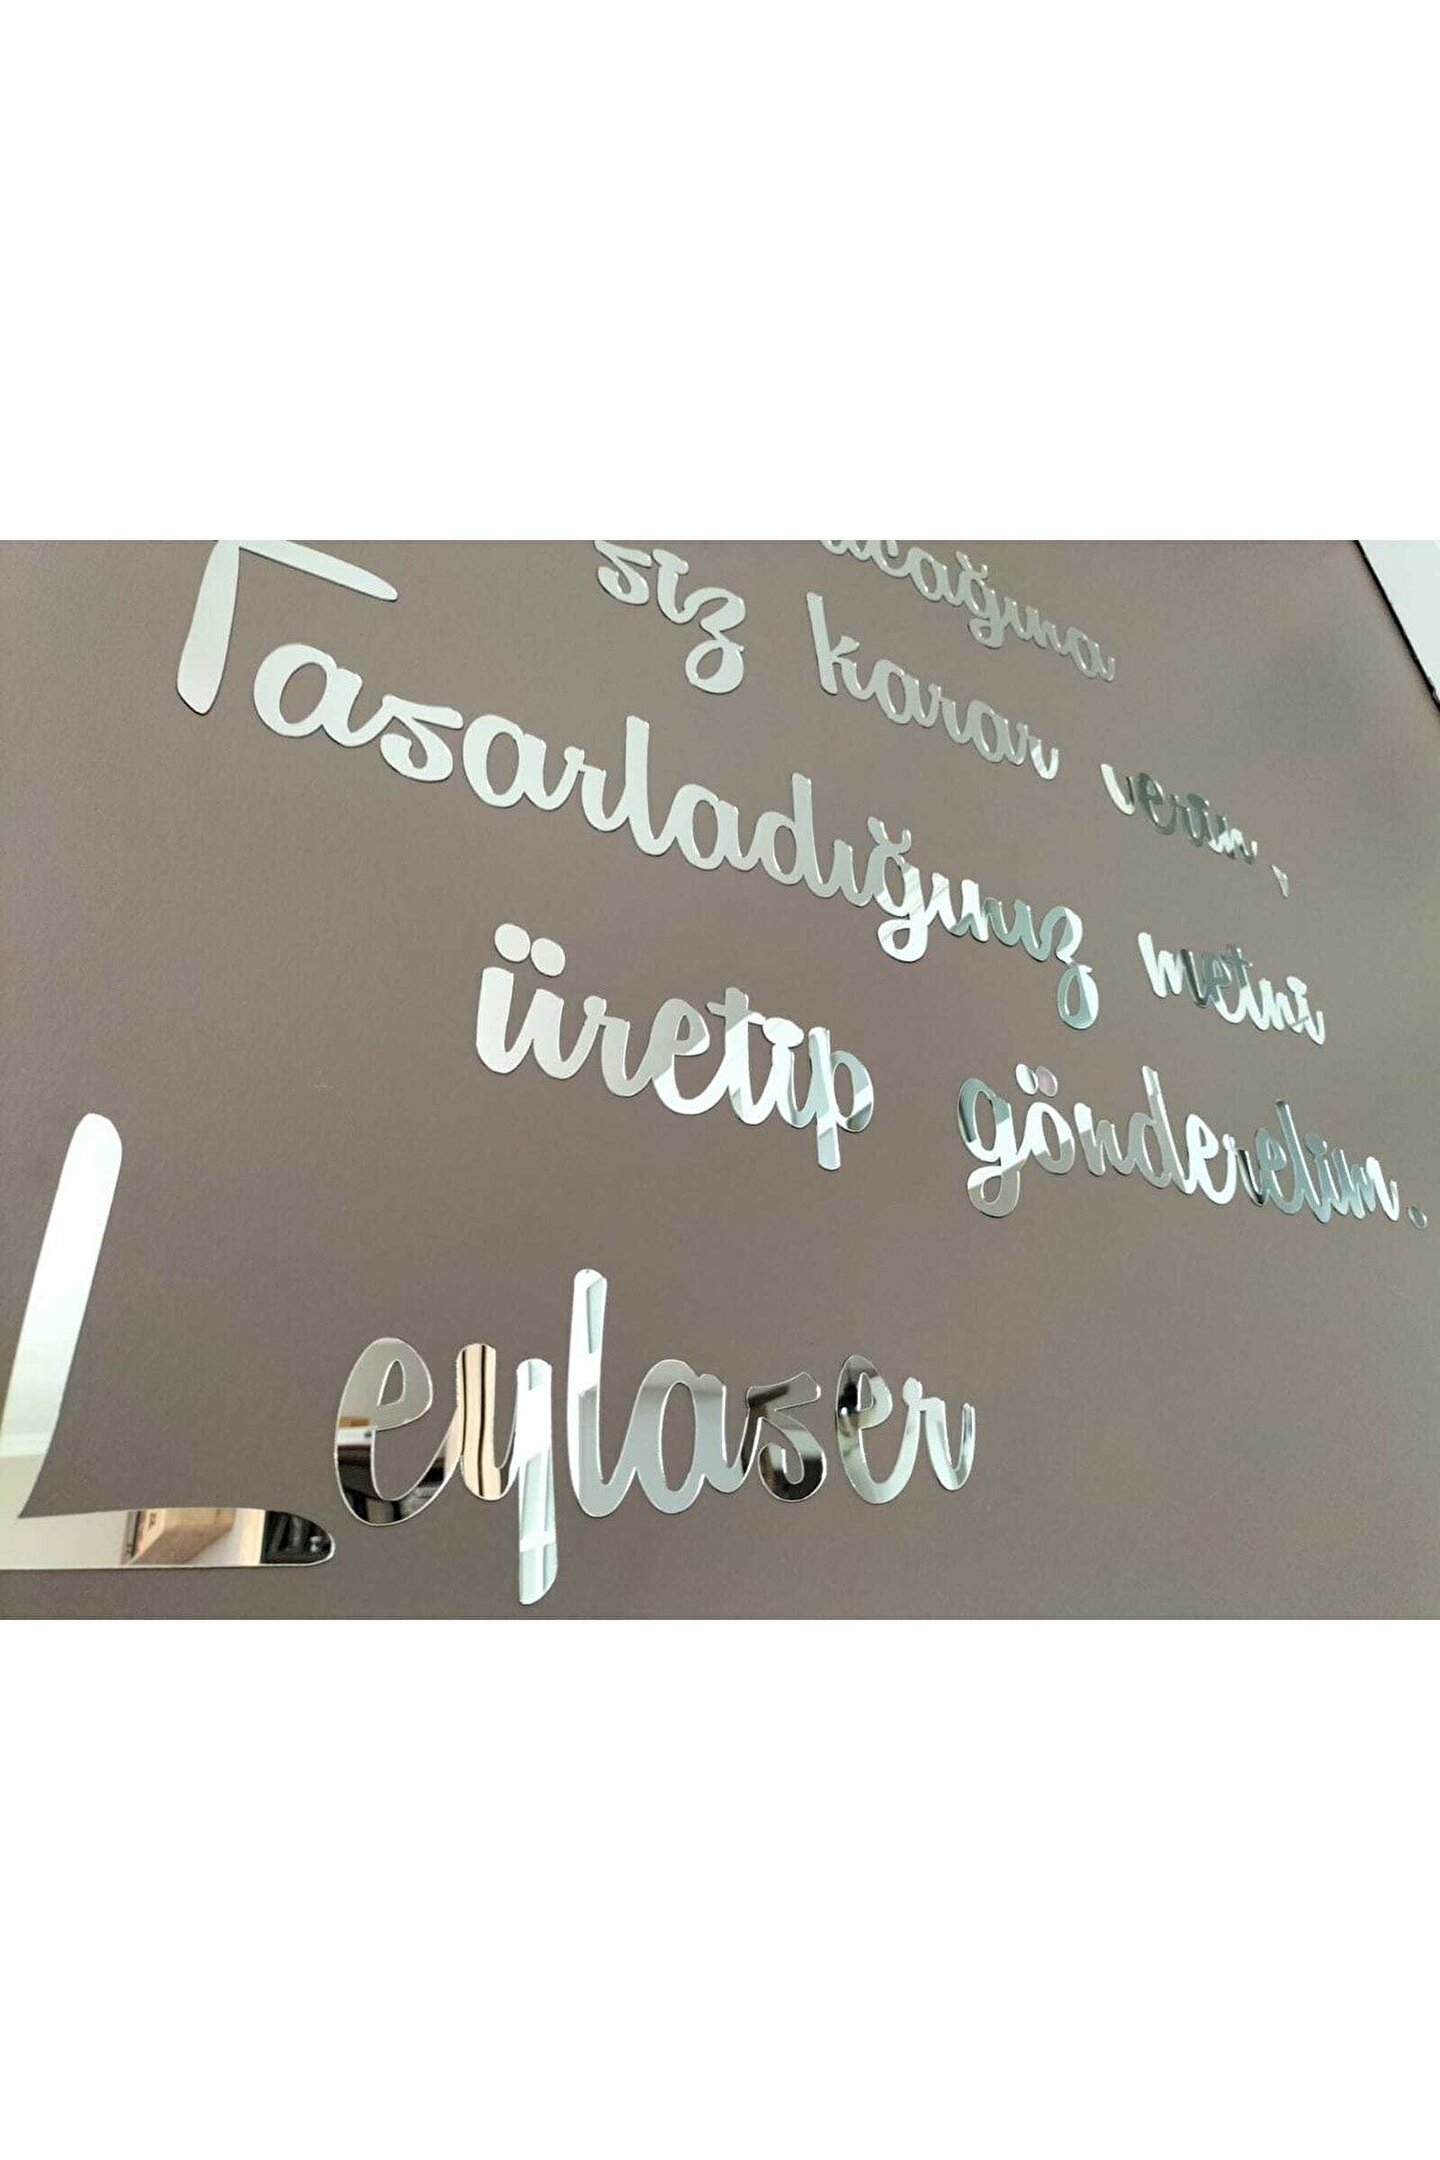 siz karar verin,
Tasarladığınız metni
üretip gönderelim.
Leylaser